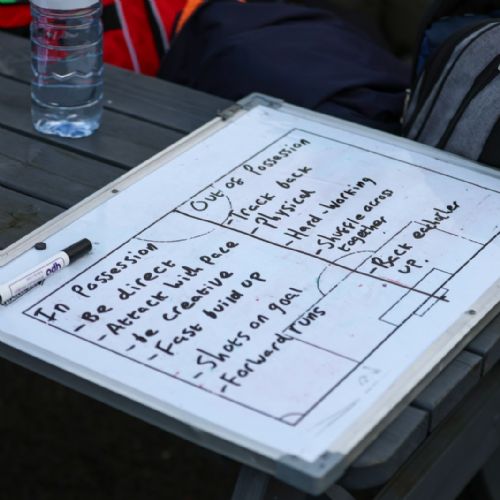 In Possession
- Be direct
- Attack with Pace
- be creative
- Fast build up
- Shots on goal
- Forward runs
Out of Possession
- Track back
- Physical
- Hard-working
- Shuffle across
together
- Back eachother
up.